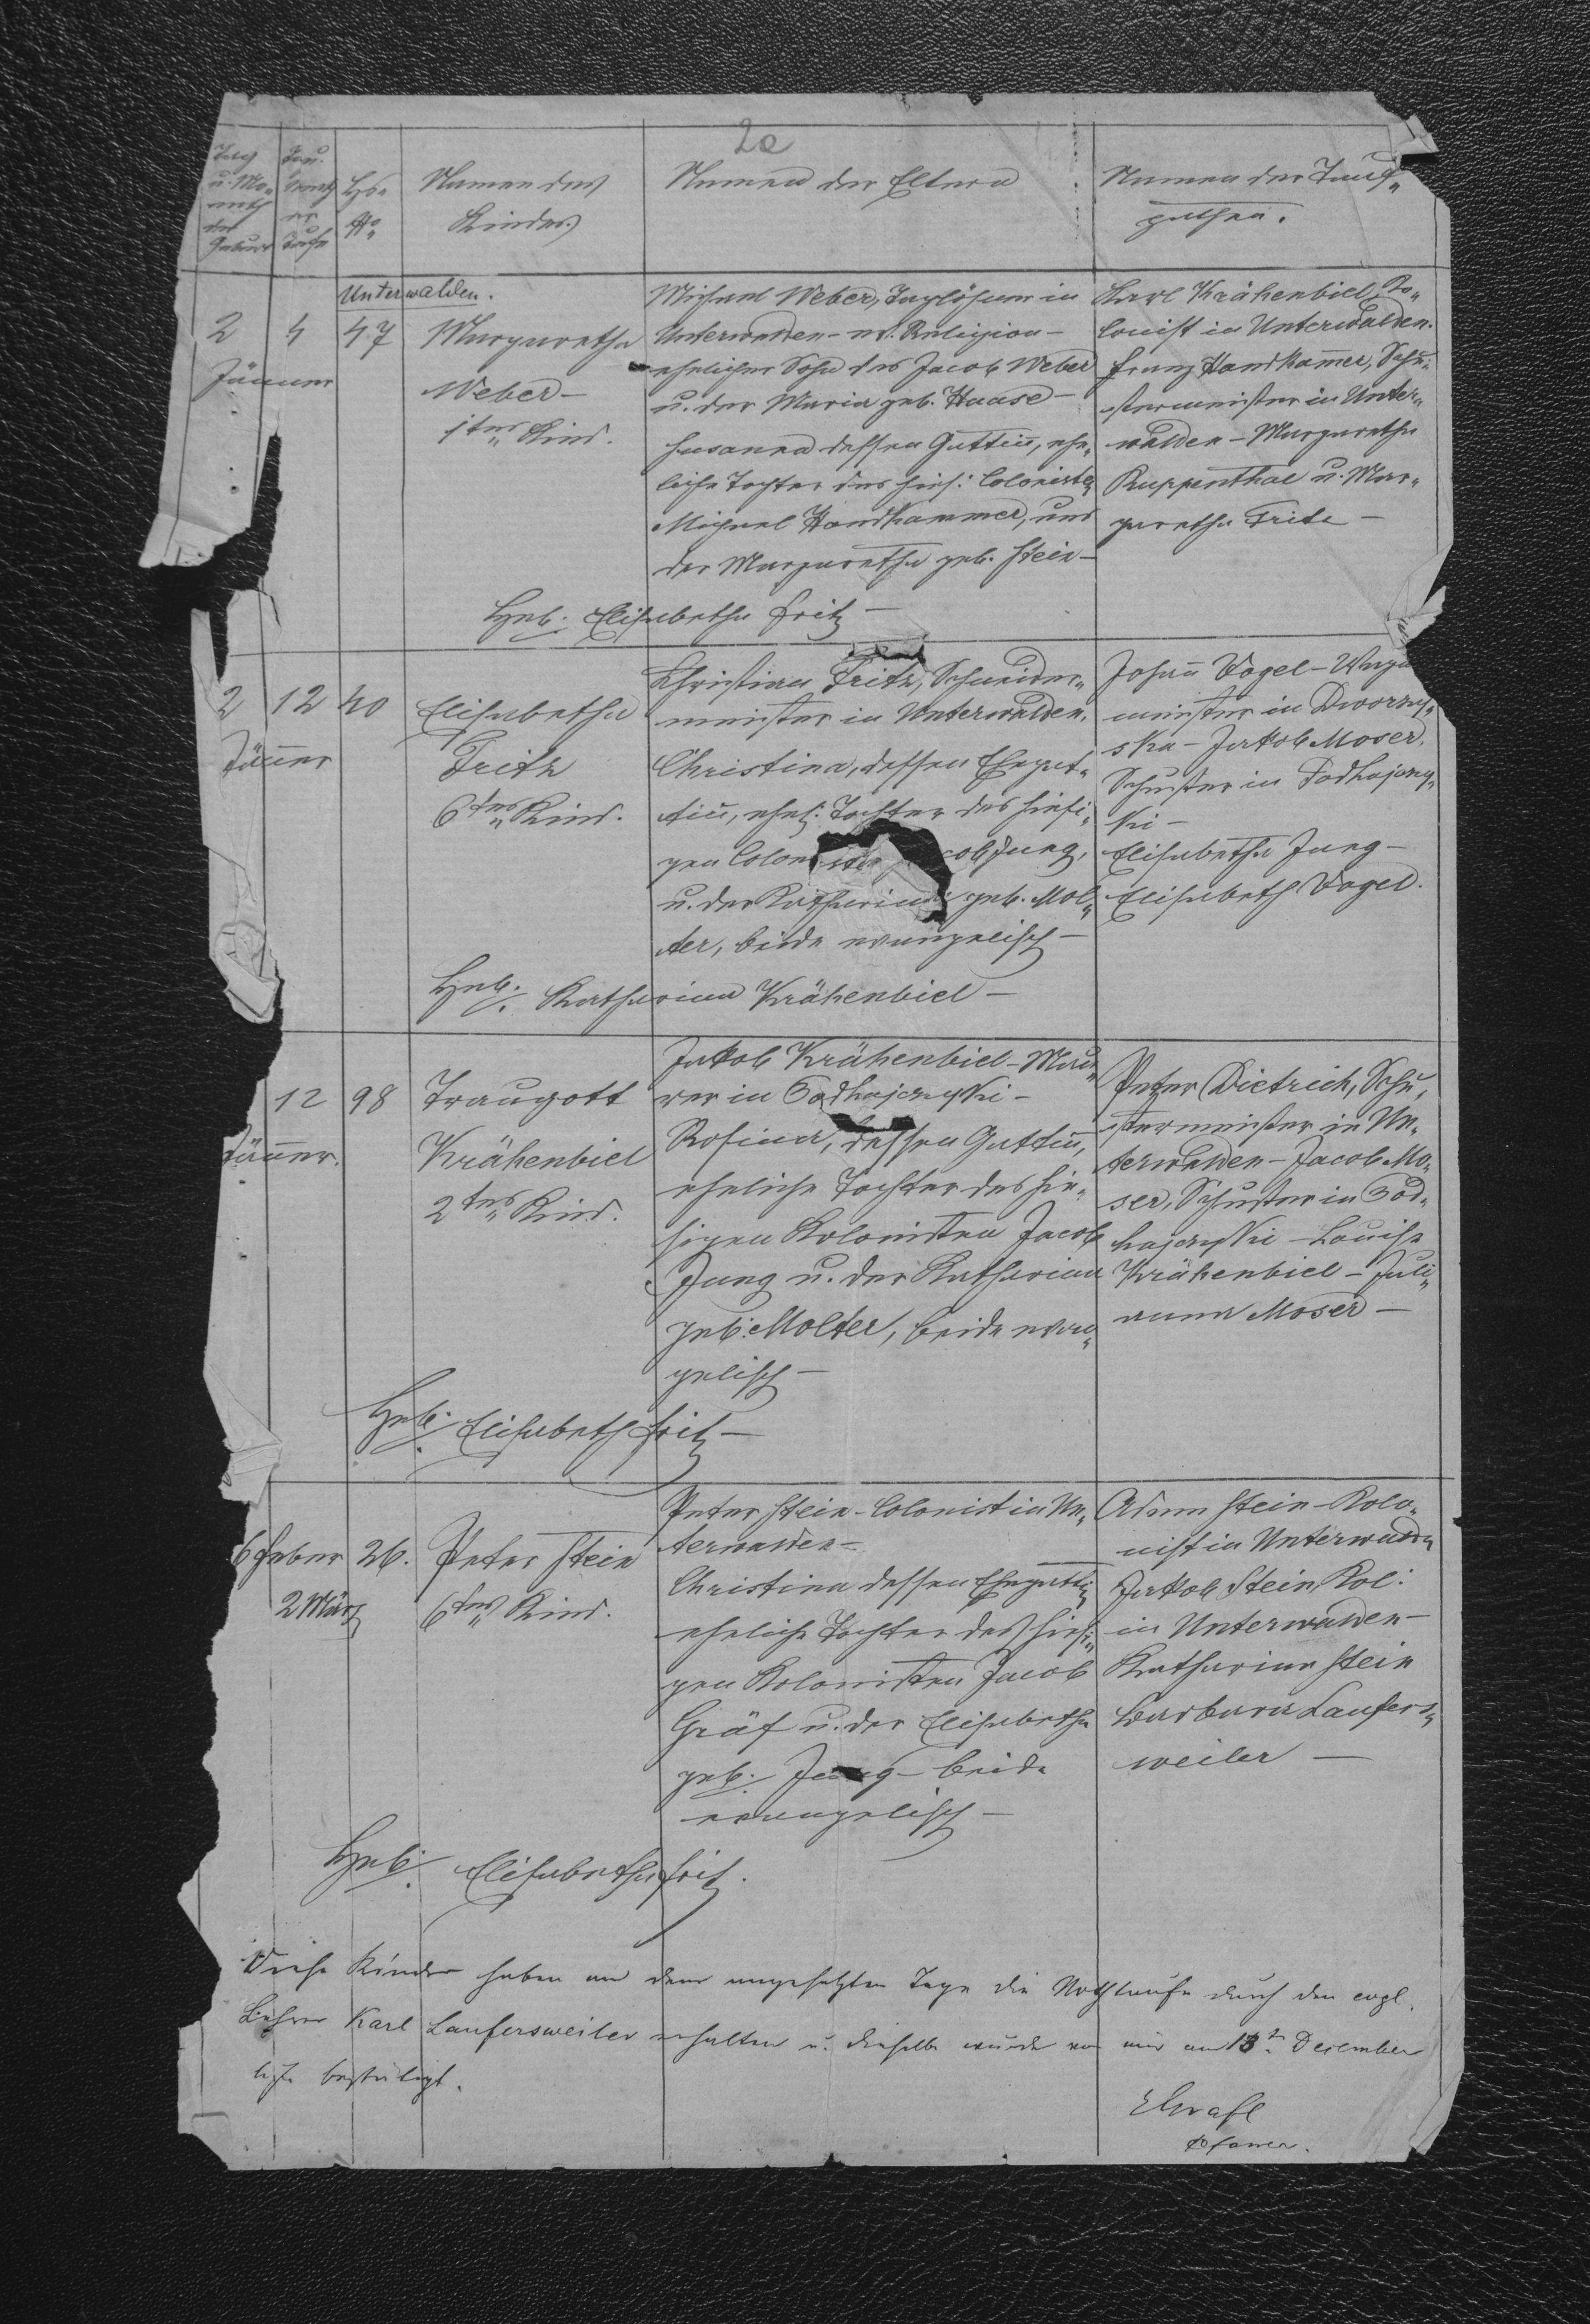 2a
Tag
u. Mo-
nath
der
Geburt
Tau.
Monath
der
Taufe
Hs.
No
Namen des
Kindes
Namen der Eltern
Namen der Tauf„
pathen.
Unterwalden.
2
Jänner
4
47
Margaretha
Weber –
1tes Kind.
Michael Weber, Taglöhner in
Unterwalden – ev. Religion –
ehelicher Sohn des Jacob Weber
u. der Maria geb. Haase –
Susanna dessen Gattin, ehe„
liche Tochter des hies: Colonisten
Michael Handkammer, und
der Margaretha geb. Stein –
Karl Krähenbiel, Ko„
lonist in Unterwalden.
Franz Handkamer, Schu„
stermeister in Unter„
walden – Margaretha
Ruppenthal u. Mar„
garetha Fritz –
Heb. Elisabetha Fritz –
2
Jäner
12
40
Elisabetha
Fritz
6tes Kind.
Christian Fritz, Schneider„
meister in Unterwalden.
Christina, dessen Ehegat„
tin, ehel: Tochter des hiesi„
gen Colonisten Jacob Jung,
u. der Katharina geb. Mol„
ter, beide evangelisch –
Johan Vogel – Wagn
meister in Dworzy„
ska – Jakob Moser,
Schuster in Podhajczy„
ki –
Elisabetha Jung –
Elisabeth Vogel.
Heb. Katharina Krähenbiel –
Jäner.
12
98
Traugott
Krähenbiel
2tes Kind.
Jakob Krähenbiel – Mau„
rer in Podhajczyki –
Rosina, dessen Gattin,
eheliche Tochter des hie„
sigen Kolonisten Jacob
Jung u. der Katharina
geb. Molter, beide evan„
gelisch –
Peter Dietrich, Schu„
stermeister in Un„
terwalden – Jacob Mo„
ser, Schuster in Pod„
hajczyki – Louise
Krähenbiel – Juli„
anna Moser –
Heb. Elisabeth Fritz –
6 Feber
2 März
26.
Peter Stein
6tes Kind.
Peter Stein – Colonist in Un„
terwalden –
Christina dessen Ehegattin
eheliche Tochter des hiesi„
gen Kolonisten Jacob
Gräf u. der Elisabetha
geb. Jung – beide
evangelisch –
Adam Stein – Kolo„
nist in Unterwalden
Jakob Stein Kol:
in Unterwalden –
Katharina Stein
Barbara Laufers„
weiler –
Heb. Elisabetha Fritz.
Diese Kinder haben an dem angesetzten Tage die Nothtaufe durch den evgl.
Lehrer Karl Laufersweiler erhalten u. dieselbe wurde von mir am 13t. Dezember
bestätigt.
Pfarrer.